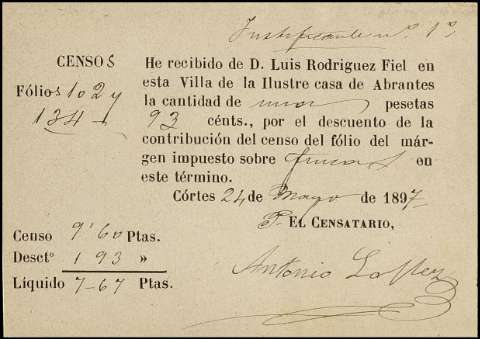 Justificante nº. 1º
CENSOS
Fólios 102 y
134
He recibido de D. Luis Rodriguez Fiel en
esta Villa de la Ilustre casa de Abrantes
la cantidad de una pesetas
93 cénts., por el descuento de la
contribución del censo del fólio del már-
gen impuesto sobre fincas en
este término.
Córtes 24 de Mayo de 1897
P. EL CENSATARIO,
Censo 9'60 Ptas.
Desctº 1 93 »
Líquido 7-67 Ptas.
Antonio Lopez